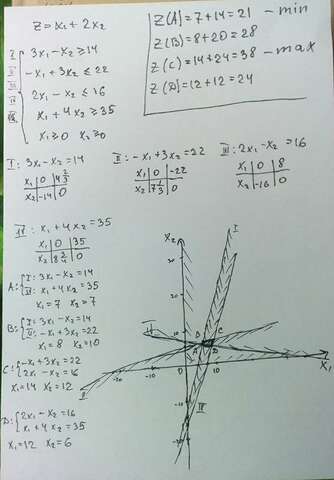 Z = 1x₁ + 2x₂
I 3x₁ - x₂ ≥ 14
II -x₁ + 3x₂ ≤ 22
III 2x₁ - x₂ ≤ 16
IV x₁ + 4x₂ ≥ 35
x₁ ≥ 0 x₂ ≥ 0
Z(A) = 7 + 14 = 21 - min
Z(B) = 8 + 20 = 28
Z(C) = 14 + 24 = 38 - max
Z(D) = 12 + 12 = 24
I: 3x₁ - x₂ = 14
x₁ 0 4 2/3
x₂ -14 0
II: -x₁ + 3x₂ = 22
x₁ 0 -22
x₂ 7 1/3 0
III: 2x₁ - x₂ = 16
x₁ 0 8
x₂ -16 0
IV: x₁ + 4x₂ = 35
x₁ 0 35
x₂ 8 3/4 0
A: I: 3x₁ - x₂ = 14
IV: x₁ + 4x₂ = 35
x₁ = 7 x₂ = 7
B: I: 3x₁ - x₂ = 14
II: -x₁ + 3x₂ = 22
x₁ = 8 x₂ = 10
C: -x₁ + 3x₂ = 22
2x₁ - x₂ = 16
x₁ = 14 x₂ = 12
D: 2x₁ - x₂ = 16
x₁ + 4x₂ = 35
x₁ = 12 x₂ = 6
x₂
I
30
20
10
B C
A D
-20 -10 0 10
x₁
II
-10
III
-20